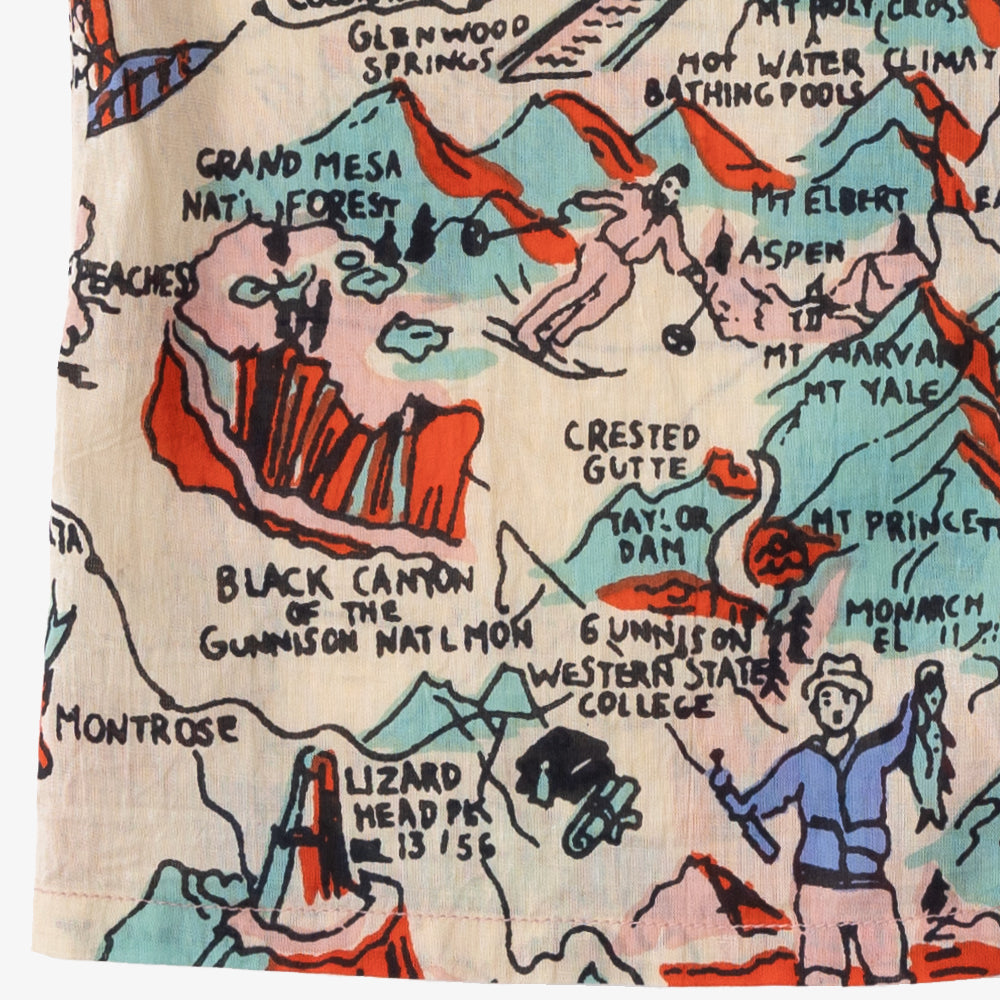 GLENWOOD
SPRINGS
MT HOLY CROSS
HOT WATER
BATHING POOLS
CLIMAX
GRAND MESA
NAT'L FOREST
MT ELBERT
PEACHES
ASPEN
MT HARVAR
MT YALE
CRESTED
GUTTE
TAYLOR
DAM
MT PRINCET
BLACK CANYON
OF THE
GUNNISON NAT L MON
GUNNISON
WESTERN STATE
COLLEGE
MONARCH
EL 11
MONTROSE
LIZARD
HEAD PK
13 156